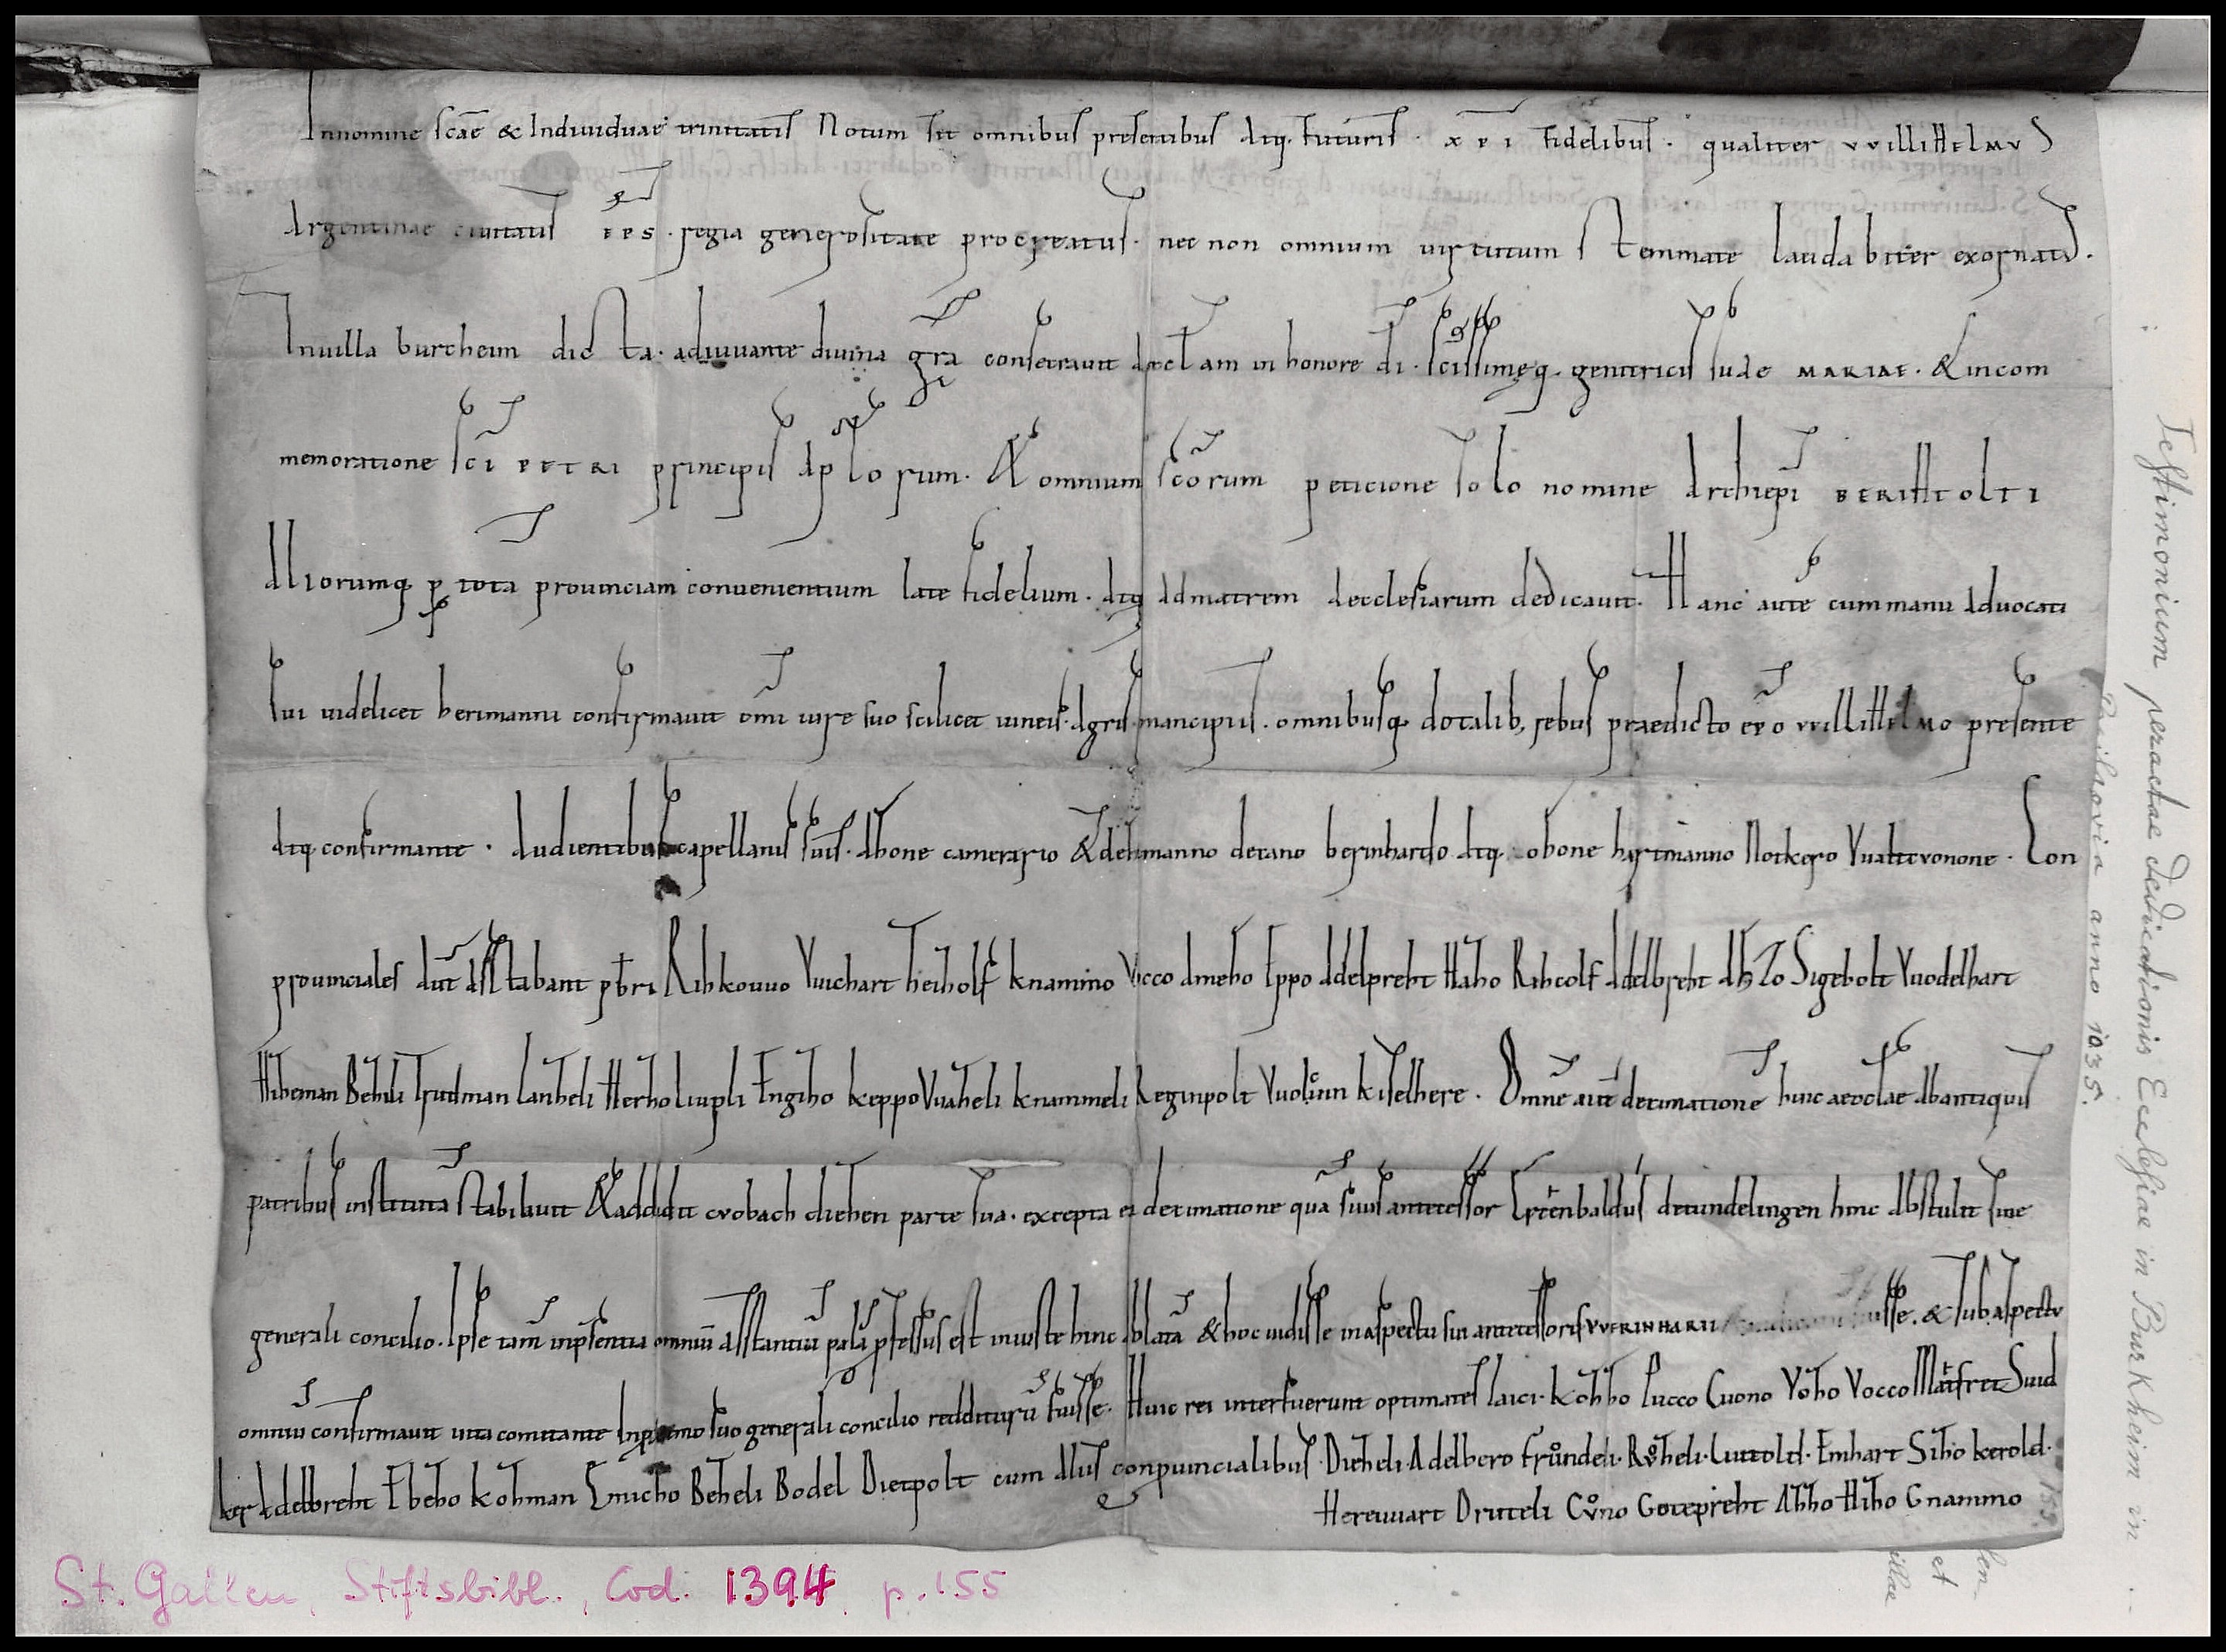 Innomine scae & Individuae trinitatis Notum sit omnibus presentibus atq. futuris. xpi fidelibus. qualiter vvillihelmus
Argentinae civitatis eps. regia generositate procreatus. nec non omnium virtutum stemmate laudabiter exornatus.
Invilla burcheim dicta. adiuvante divina gra consecravit aecclam in honore di. scissimeq. genitricis suae MARIAE. & incom
memoratione sci PETRI principis aplorum. & omnium scorum peticione solo nomine Archiepi BERIHTOLTI
Aliorumq. p tota provinciam convenientium late fidelium. atq. Admatrem aecclesiarum dedicavit. Hanc aute cum manu Advocati
sui videlicet herimanni confirmavit omi iure suo scilicet vineis. Agris. mancipiis. omnibusq. dotalib, rebus praedicto epo vvillihelmo presente
atq. confirmante. Audientibus capellanis suis. Abone camerario & dehmanno decano bernhardo atq. obone hartmanno Notkero Vvattvonone. Con
provinciales aut Astabant pbri Rihkovvo Vvichart heiholf knamino Vocco Ameho Eppo Adelpreht Haho Rihcolf Adelbreht Sigebolt Vvodelhart
Hiheman Beheli Trudman lanheli Herho liupli Engiho keppo Vvaheli knammeli Reginpolt Kiselhere. Omne aute decimatione huic aecclae Abantiquis
patribus instituta stabilivit & addidit crobach diehen parte sua. excepta ei decimatione qua suus antecessor Erkenbaldus detundelingen hinc Abstulit sine
generali concilio. Ipse tam inpsentia omniu Astantiu pala pfessus est iniuste hinc Ablata & hoc vidisse inaspectu sui antecessoris VVERINHARII fuisse. & sub aspectu
omniu confirmavit vita comitante Inprimo suo generali concilio redditturu fuisse. Huic rei interfuerunt optimates laici. kohho Pucco Cuono Voho Vocco Matfret Suid
ker Adelbreht Ebeho kohman Emicho Beheli Bodel Dietpolt cum Aliis conpvincialibus. Dieheli. Adelbero frundeli. Roheli. Luttold. Emhart Siho kerold.
Herevvart Druteli Cvno Gotepreht Ahho Hiho Gnammo
Testimonium peractae dedicationis Ecclesiae in Burkheim in
anno 1035.
155
len
et
illae
St. Gallen, Stiftsbibl., Cod. 1394, p. 155